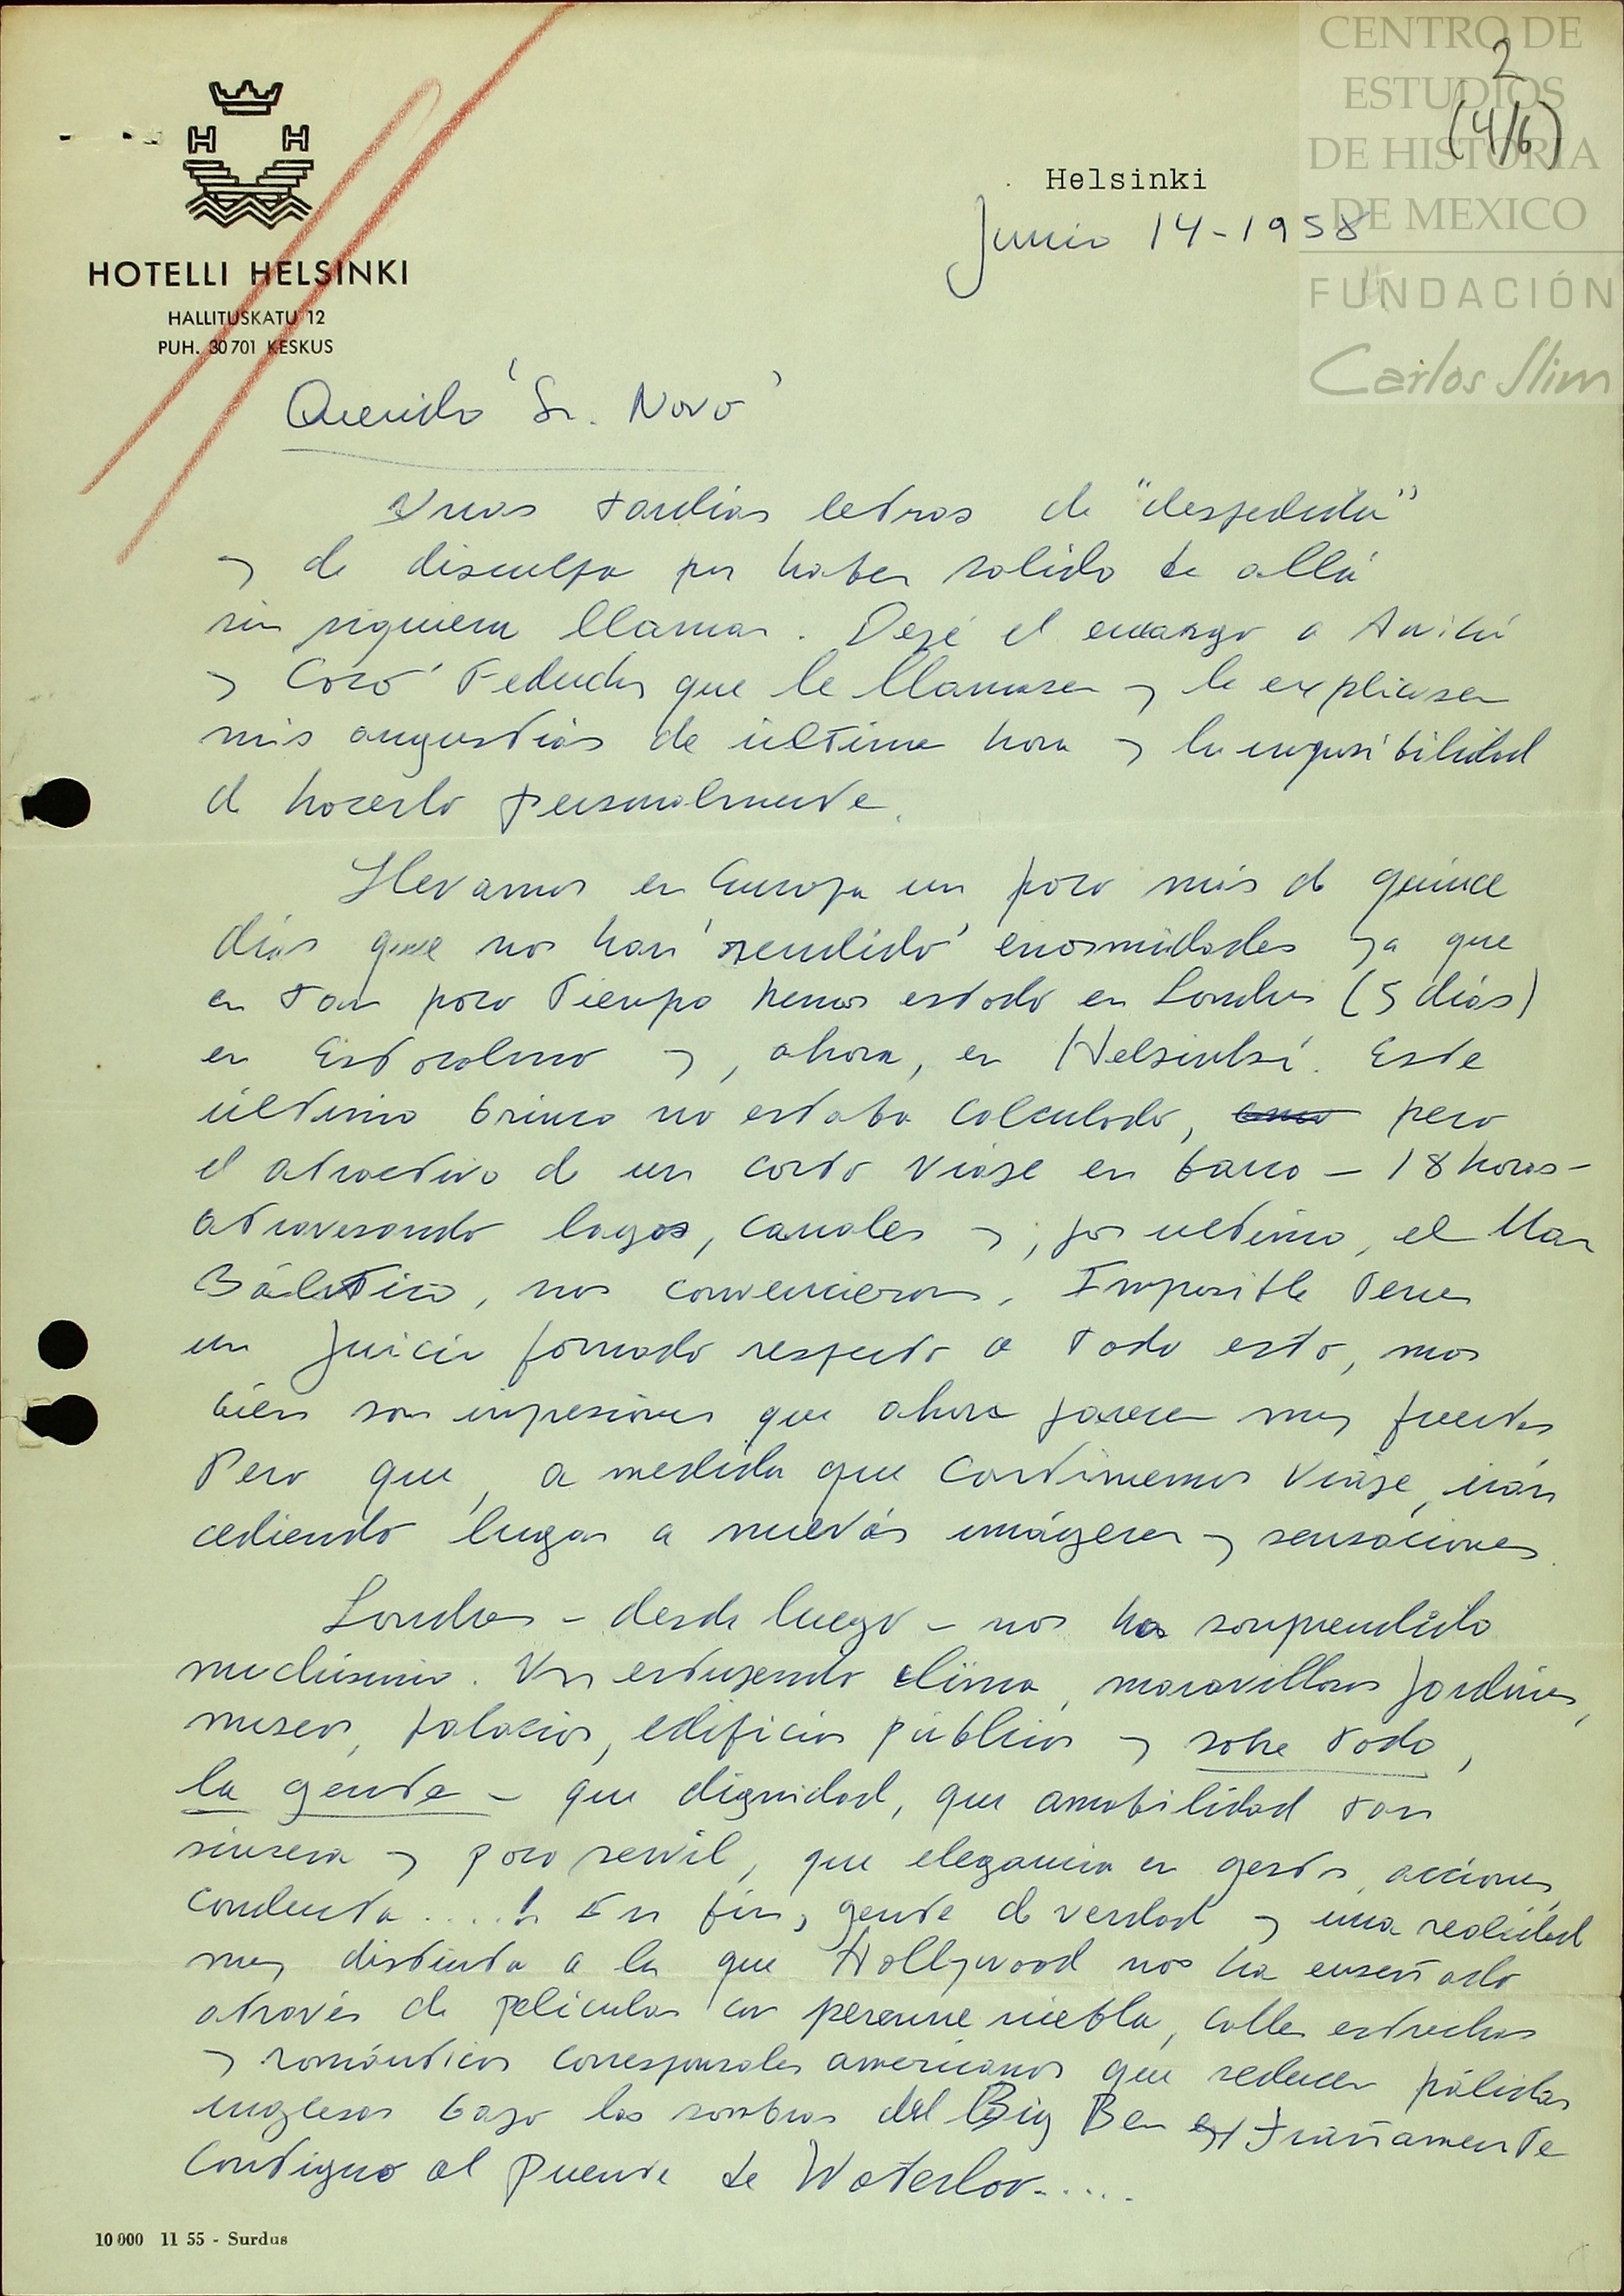 CENTRO DE
ESTUDIOS
DE HISTORIA
DE MEXICO
FUNDACIÓN
Carlos Slim
2
(4/6)
H H
HOTELLI HELSINKI
HALLITUSKATU 12
PUH. 30 701 KESKUS
Helsinki
Junio 14-1958
Querido Sr. Novo
Unas tardias letras de "despedida"
y de disculpa por haber salido de allá
sin siquiera llamar. Dejé el encargo a
y Coco que le llamasen y le explicasen
mis angustias de última hora y la imposibilidad
de hacerlo personalmente.
Llevamos en Europa un poco más de quince
días que nos han rendido enormidades ya que
en tan poco tiempo hemos estado en Londres (5 días)
en Estocolmo y, ahora, en Helsinki. Este
último brinco no estaba calculado, pero
el atractivo de un corto viaje en barco - 18 horas -
atravesando lagos, canales y, por ultimo, el Mar
Báltico, nos convencieron. Imposible tener
un juicio formado respecto a todo esto, mas
bien son impresiones que ahora parecen muy fuertes
Pero que, a medida que continuemos viaje, irán
cediendo lugar a nuevas imágenes y sensaciones.
Londres - desde luego - nos ha sorprendido
muchisimo. Un estupendo clima, maravillosos jardines,
museos, palacios, edificios públicos y sobre todo,
la gente - que dignidad, que amabilidad tan
sincera y poco servil, que elegancia en gestos, acciones,
conducta....! En fin, gente de verdad y una realidad
muy distinta a la que Hollywood nos ha enseñado
através de películas con perenne niebla, calles estrechas
y románticos corresponsales americanos que seducen pálidas
inglesas bajo las sombras del Big Ben extrañamente
contiguo al puente de Waterloo.....
10 000 11 55 - Surdus